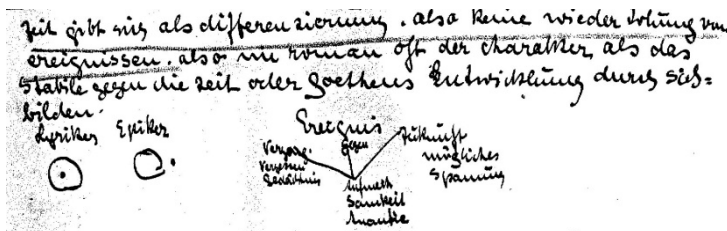 Zeit gibt sich als differenzierung. also keine wiederholung von
ereignissen. also im roman oft der charakter als das
Stabile gegen die zeit oder Goethens Entwicklung durch sich=
bilden.
Lyriker Epiker
Ereignis
Vergang. Gegen Zukunft
Vergessen mögliches
Gedächtnis Spannung
Aufmerk
Samkeit
Ananke